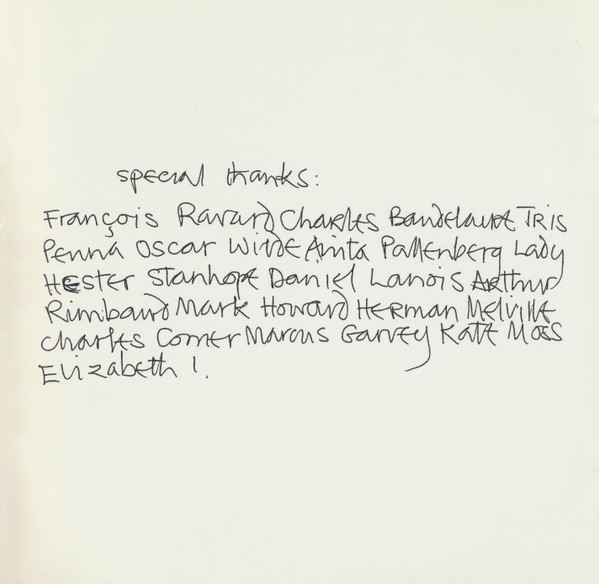 special thanks:
François Ravard Charles Baudelaire Tris
Penna Oscar Wilde Anita Pallenberg Lady
Hester Stanhope Daniel Lanois Arthur
Rimbaud Mark Howard Herman Melville
Charles Comer Marcus Garvey Kate Moss
Elizabeth 1.